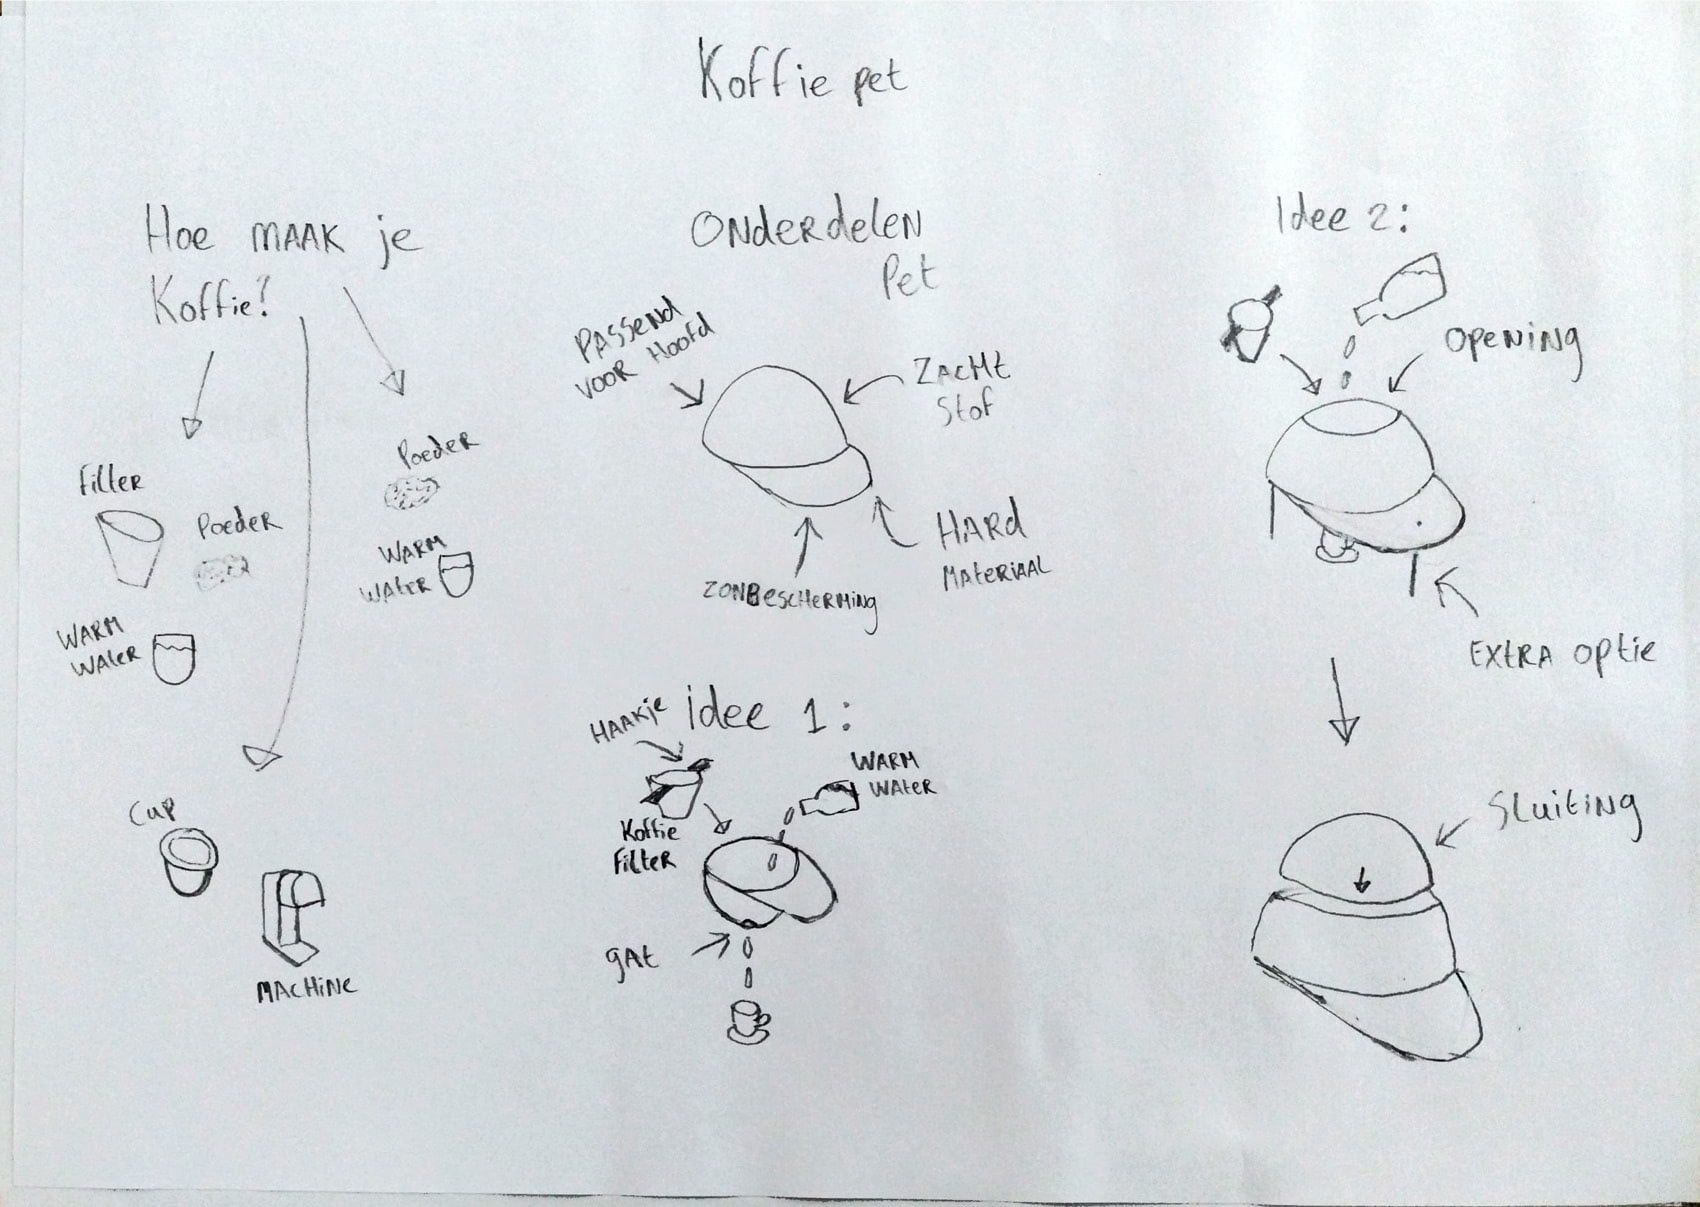 Koffie pet
Hoe maak je
Koffie?
Filter
Poeder
Warm
water
Poeder
Warm
water
Cup
Machine
Onderdelen
Pet
Passend
voor Hoofd
Zacht
Stof
Hard
Materiaal
Zonbescherming
idee 1:
Haakje
Warm
water
Koffie
Filter
gat
Idee 2:
opening
Extra optie
Sluiting